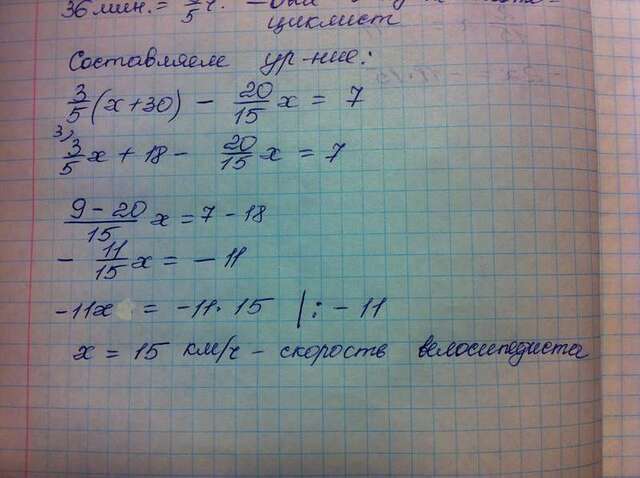 36 мин. = 3/5 ч. — был
циклист
Составляем ур-ние:
3/5 (x + 30) - 20/15 x = 7
3) 3/5 x + 18 - 20/15 x = 7
9 - 20/15 x = 7 - 18
- 11/15 x = - 11
-11x = -11 · 15 |: - 11
x = 15 км/ч - скорость велосипедиста